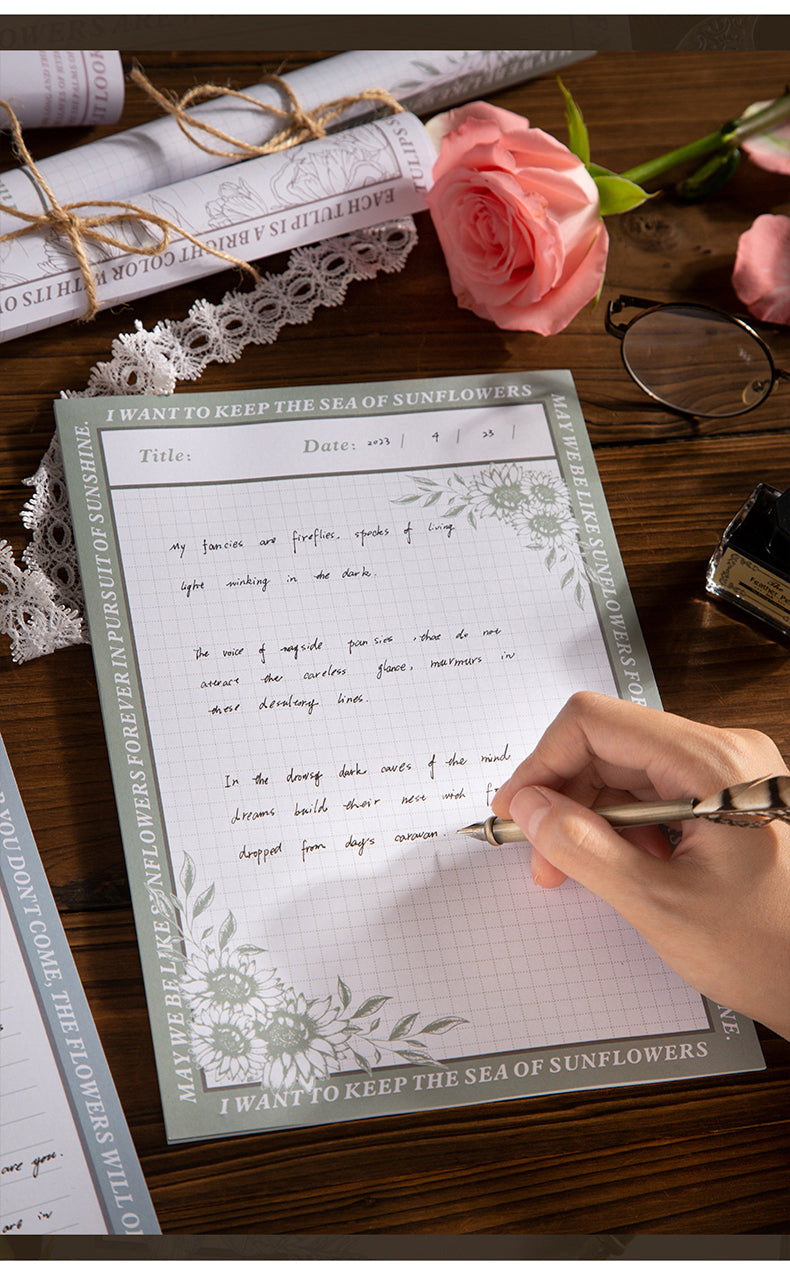 TULIPS
EACH TULIP IS A BRIGHT COLOR WITH ITS OW
I WANT TO KEEP THE SEA OF SUNFLOWERS
MAY WE BE LIKE SUNFLOWERS FOREVER IN PURSUIT OF SUNSHINE.
MAY WE BE LIKE SUNFLOWERS FOR
INE.
Title:
Date: 2023 | 4 | 23 |
My fancies are fireflies. specks of living
light winking in the dark.
The voice of wayside pansies , that do not
attract the careless glance, murmurs in
these desultory lines.
In the drowsy dark caves of the mind
dreams build their nest with f
dropped from day's caravan.
I WANT TO KEEP THE SEA OF SUNFLOWERS
Feather Pe
YOU DON'T COME, THE FLOWERS WILL
are you.
are in